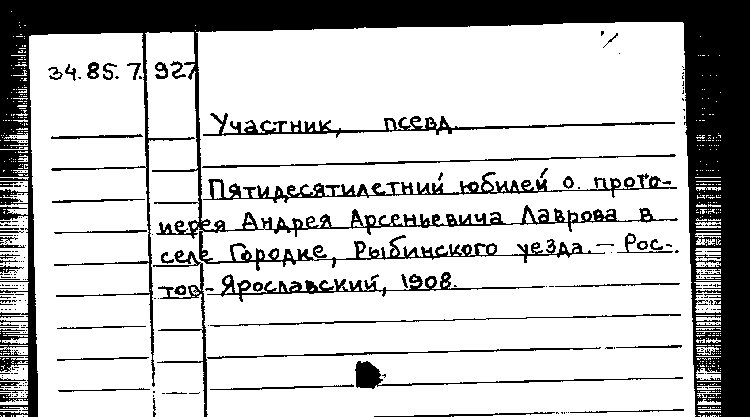 34.85.7.927
Участник, псевд.
Пятидесятилетний юбилей о. прото-
иерея Андрея Арсеньевича Лаврова в
селе Городке, Рыбинского уезда. — Рос-
тов-Ярославский, 1908.